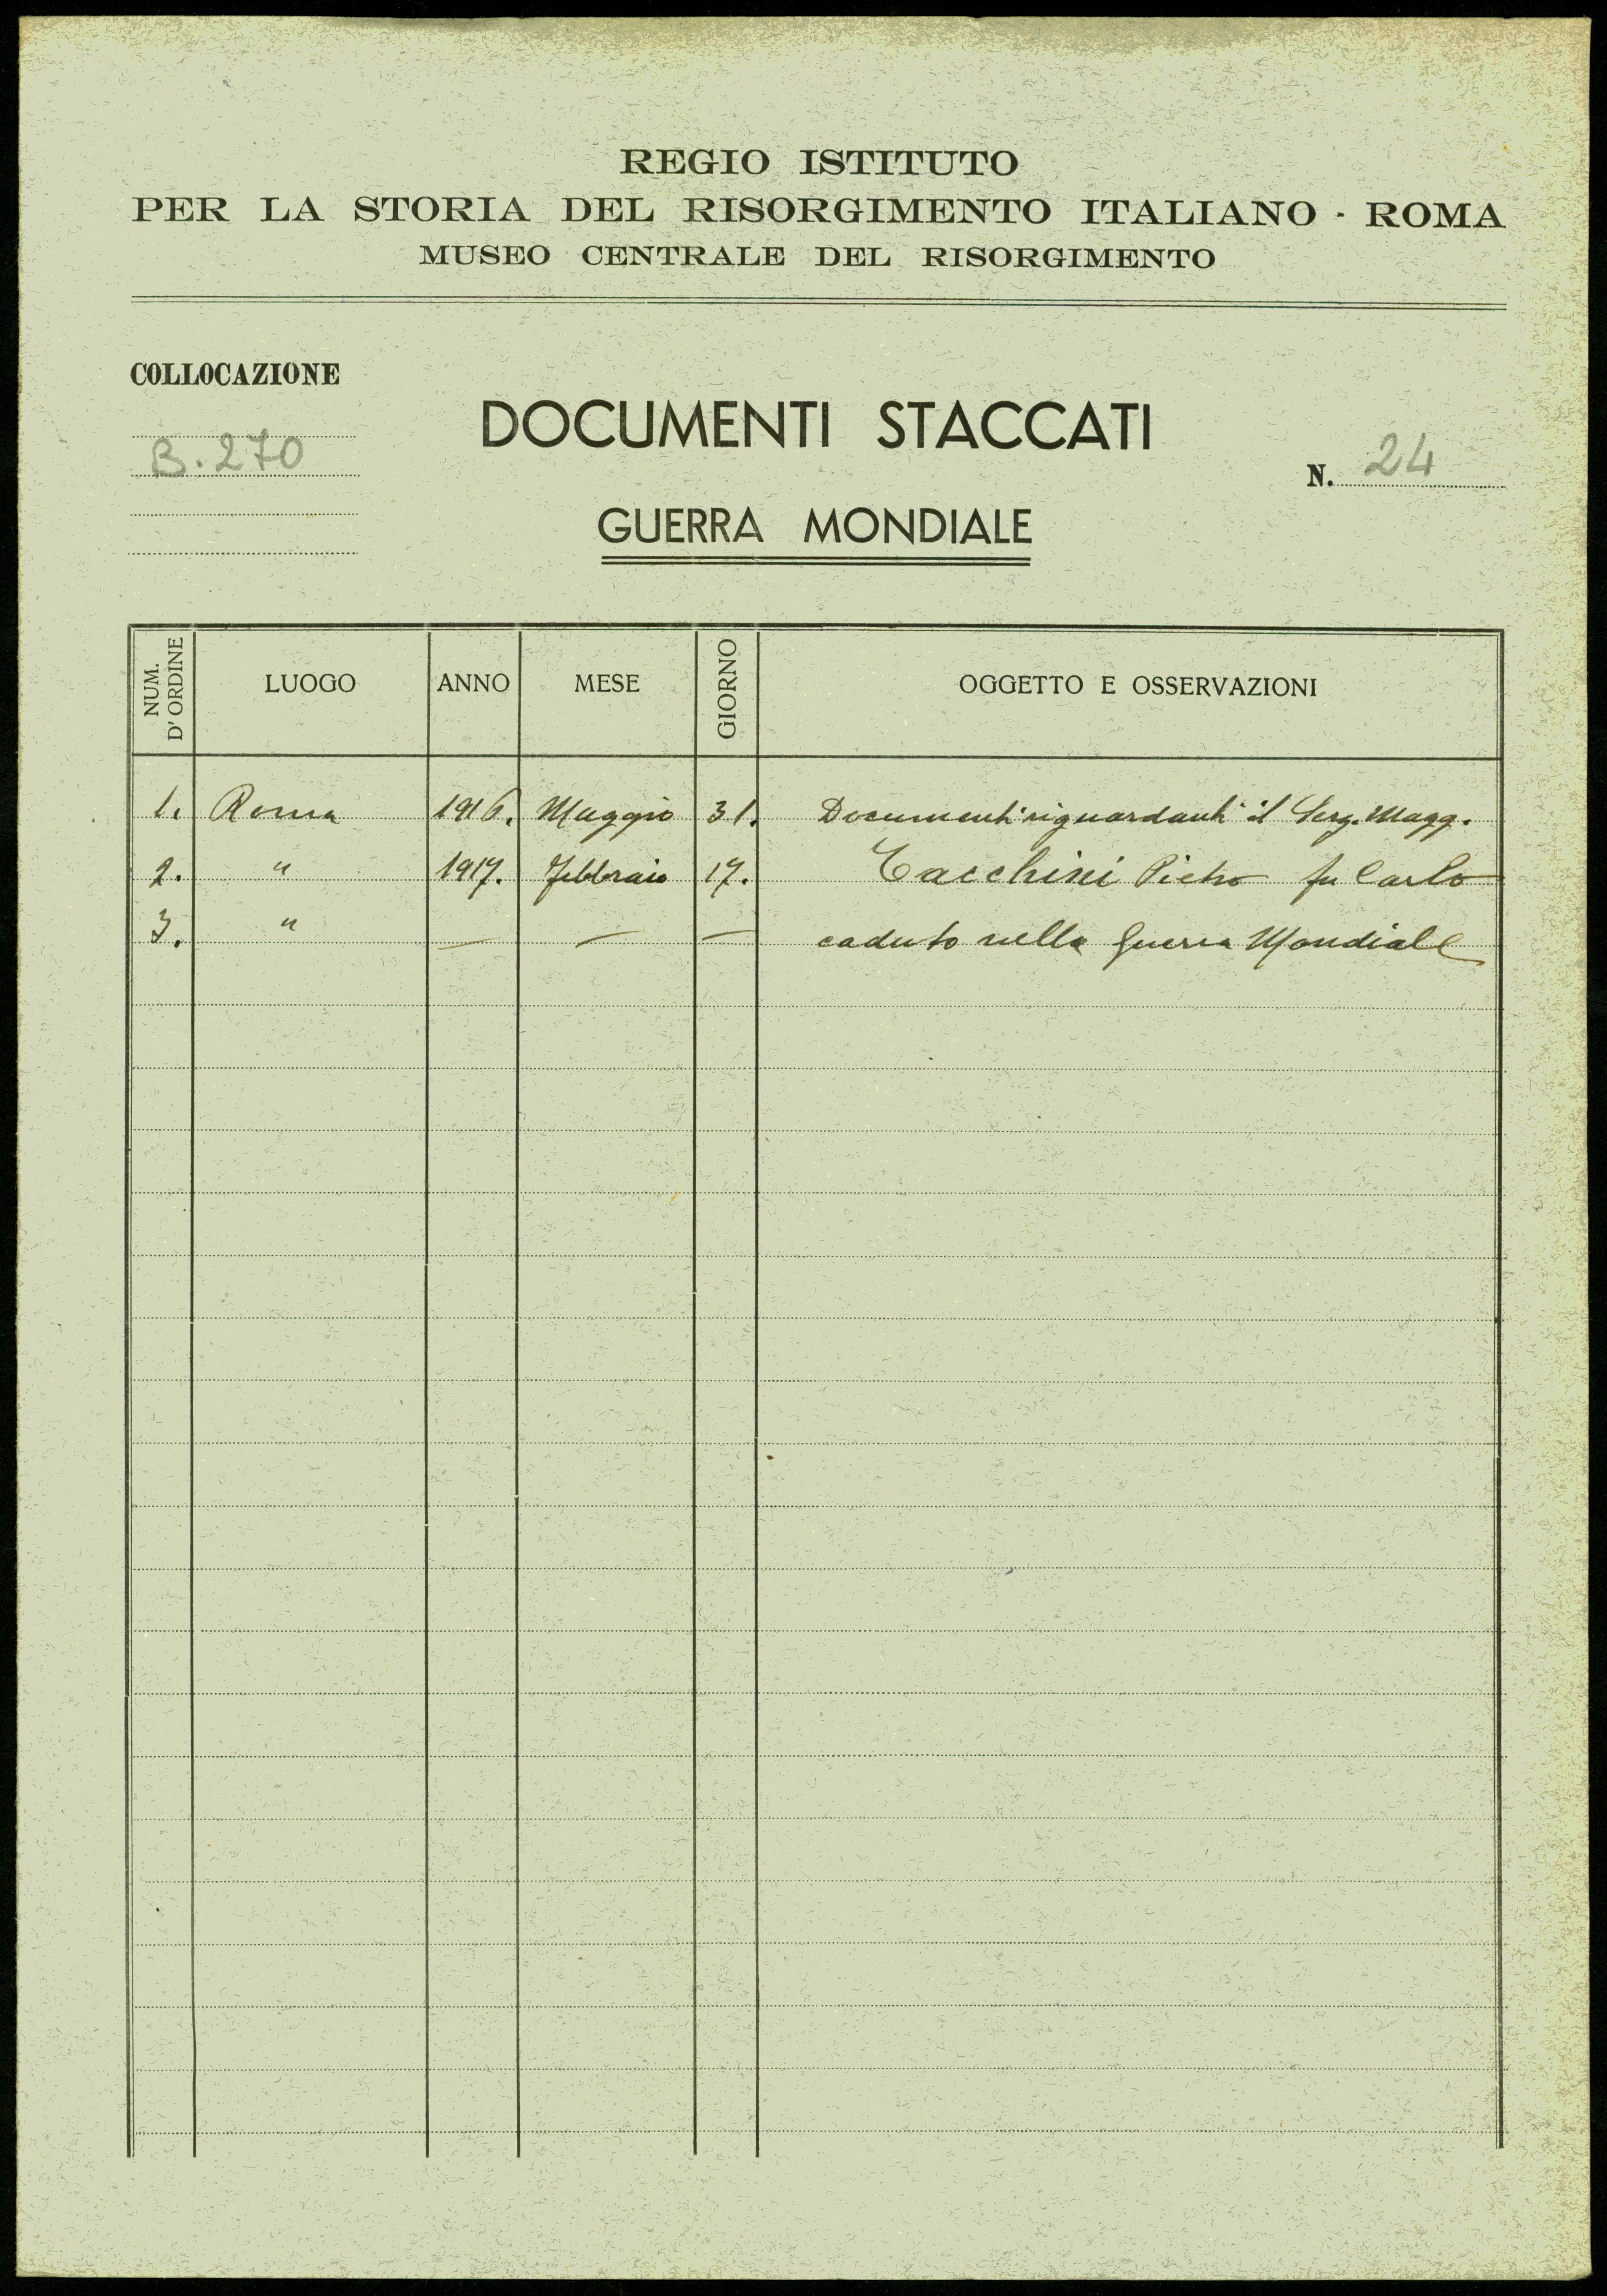 REGIO ISTITUTO
PER LA STORIA DEL RISORGIMENTO ITALIANO - ROMA
MUSEO CENTRALE DEL RISORGIMENTO
COLLOCAZIONE
B. 270
DOCUMENTI STACCATI
N. 24
GUERRA MONDIALE
NUM. D'ORDINE LUOGO ANNO MESE GIORNO OGGETTO E OSSERVAZIONI
1. Roma 1916. Maggio 31. Documenti riguardanti il Serg. Magg.
2. " 1917. Febbraio 17. Tacchini Pietro fu Carlo
3. " — — — caduto nella Guerra Mondiale